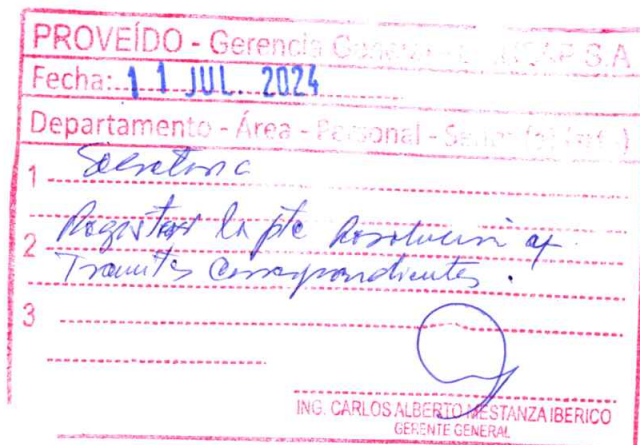 PROVEÍDO - Gerencia General S.A
Fecha: 11 JUL. 2024
Departamento - Área - Personal -
1 Secretaria
Registrar la pte Resolución
2 Tramites Correspondientes.
3
ING. CARLOS ALBERTO MESTANZA IBERICO
GERENTE GENERAL